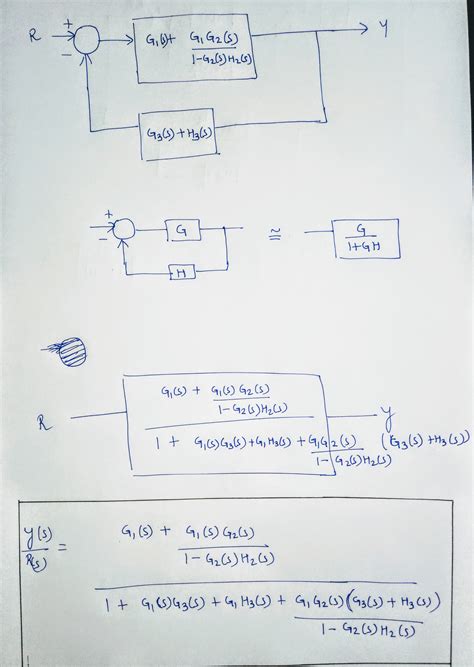 R + − G₁(s)+ G₁G₂(s) / 1-G₂(s)H₂(s) Y
G₃(s)+H₃(s)
+ − G ≅ G / 1+GH
H
G₁(s) + G₁(s)G₂(s) / 1-G₂(s)H₂(s)
R Y
1 + G₁(s)G₃(s)+G₁H₃(s) + G₁G₂(s) / 1-G₂(s)H₂(s) (G₃(s)+H₃(s))
Y(s) / R(s) = G₁(s) + G₁(s)G₂(s) / 1-G₂(s)H₂(s)
1 + G₁(s)G₃(s) + G₁H₃(s) + G₁G₂(s)(G₃(s)+H₃(s)) / 1-G₂(s)H₂(s)